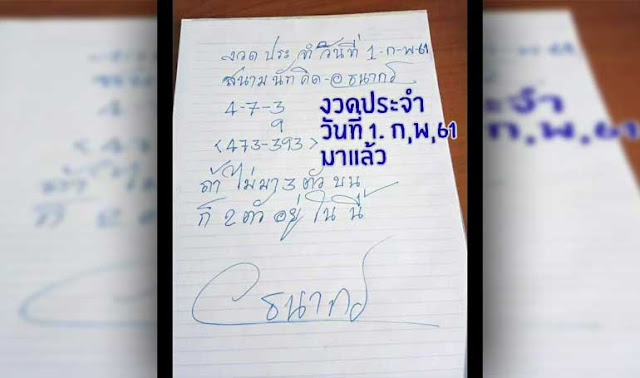 งวดประจำวันที่ 1-ก-พ-61
สนามนัก คิด-อ ธนากร
4-7-3
9
<473-393>
ถ้าไม่มา 3 ตัวบน
ก็ 2 ตัวอยู่ในนี้
ธนากร
งวดประจำ
วันที่ 1. ก,พ,61
มาแล้ว